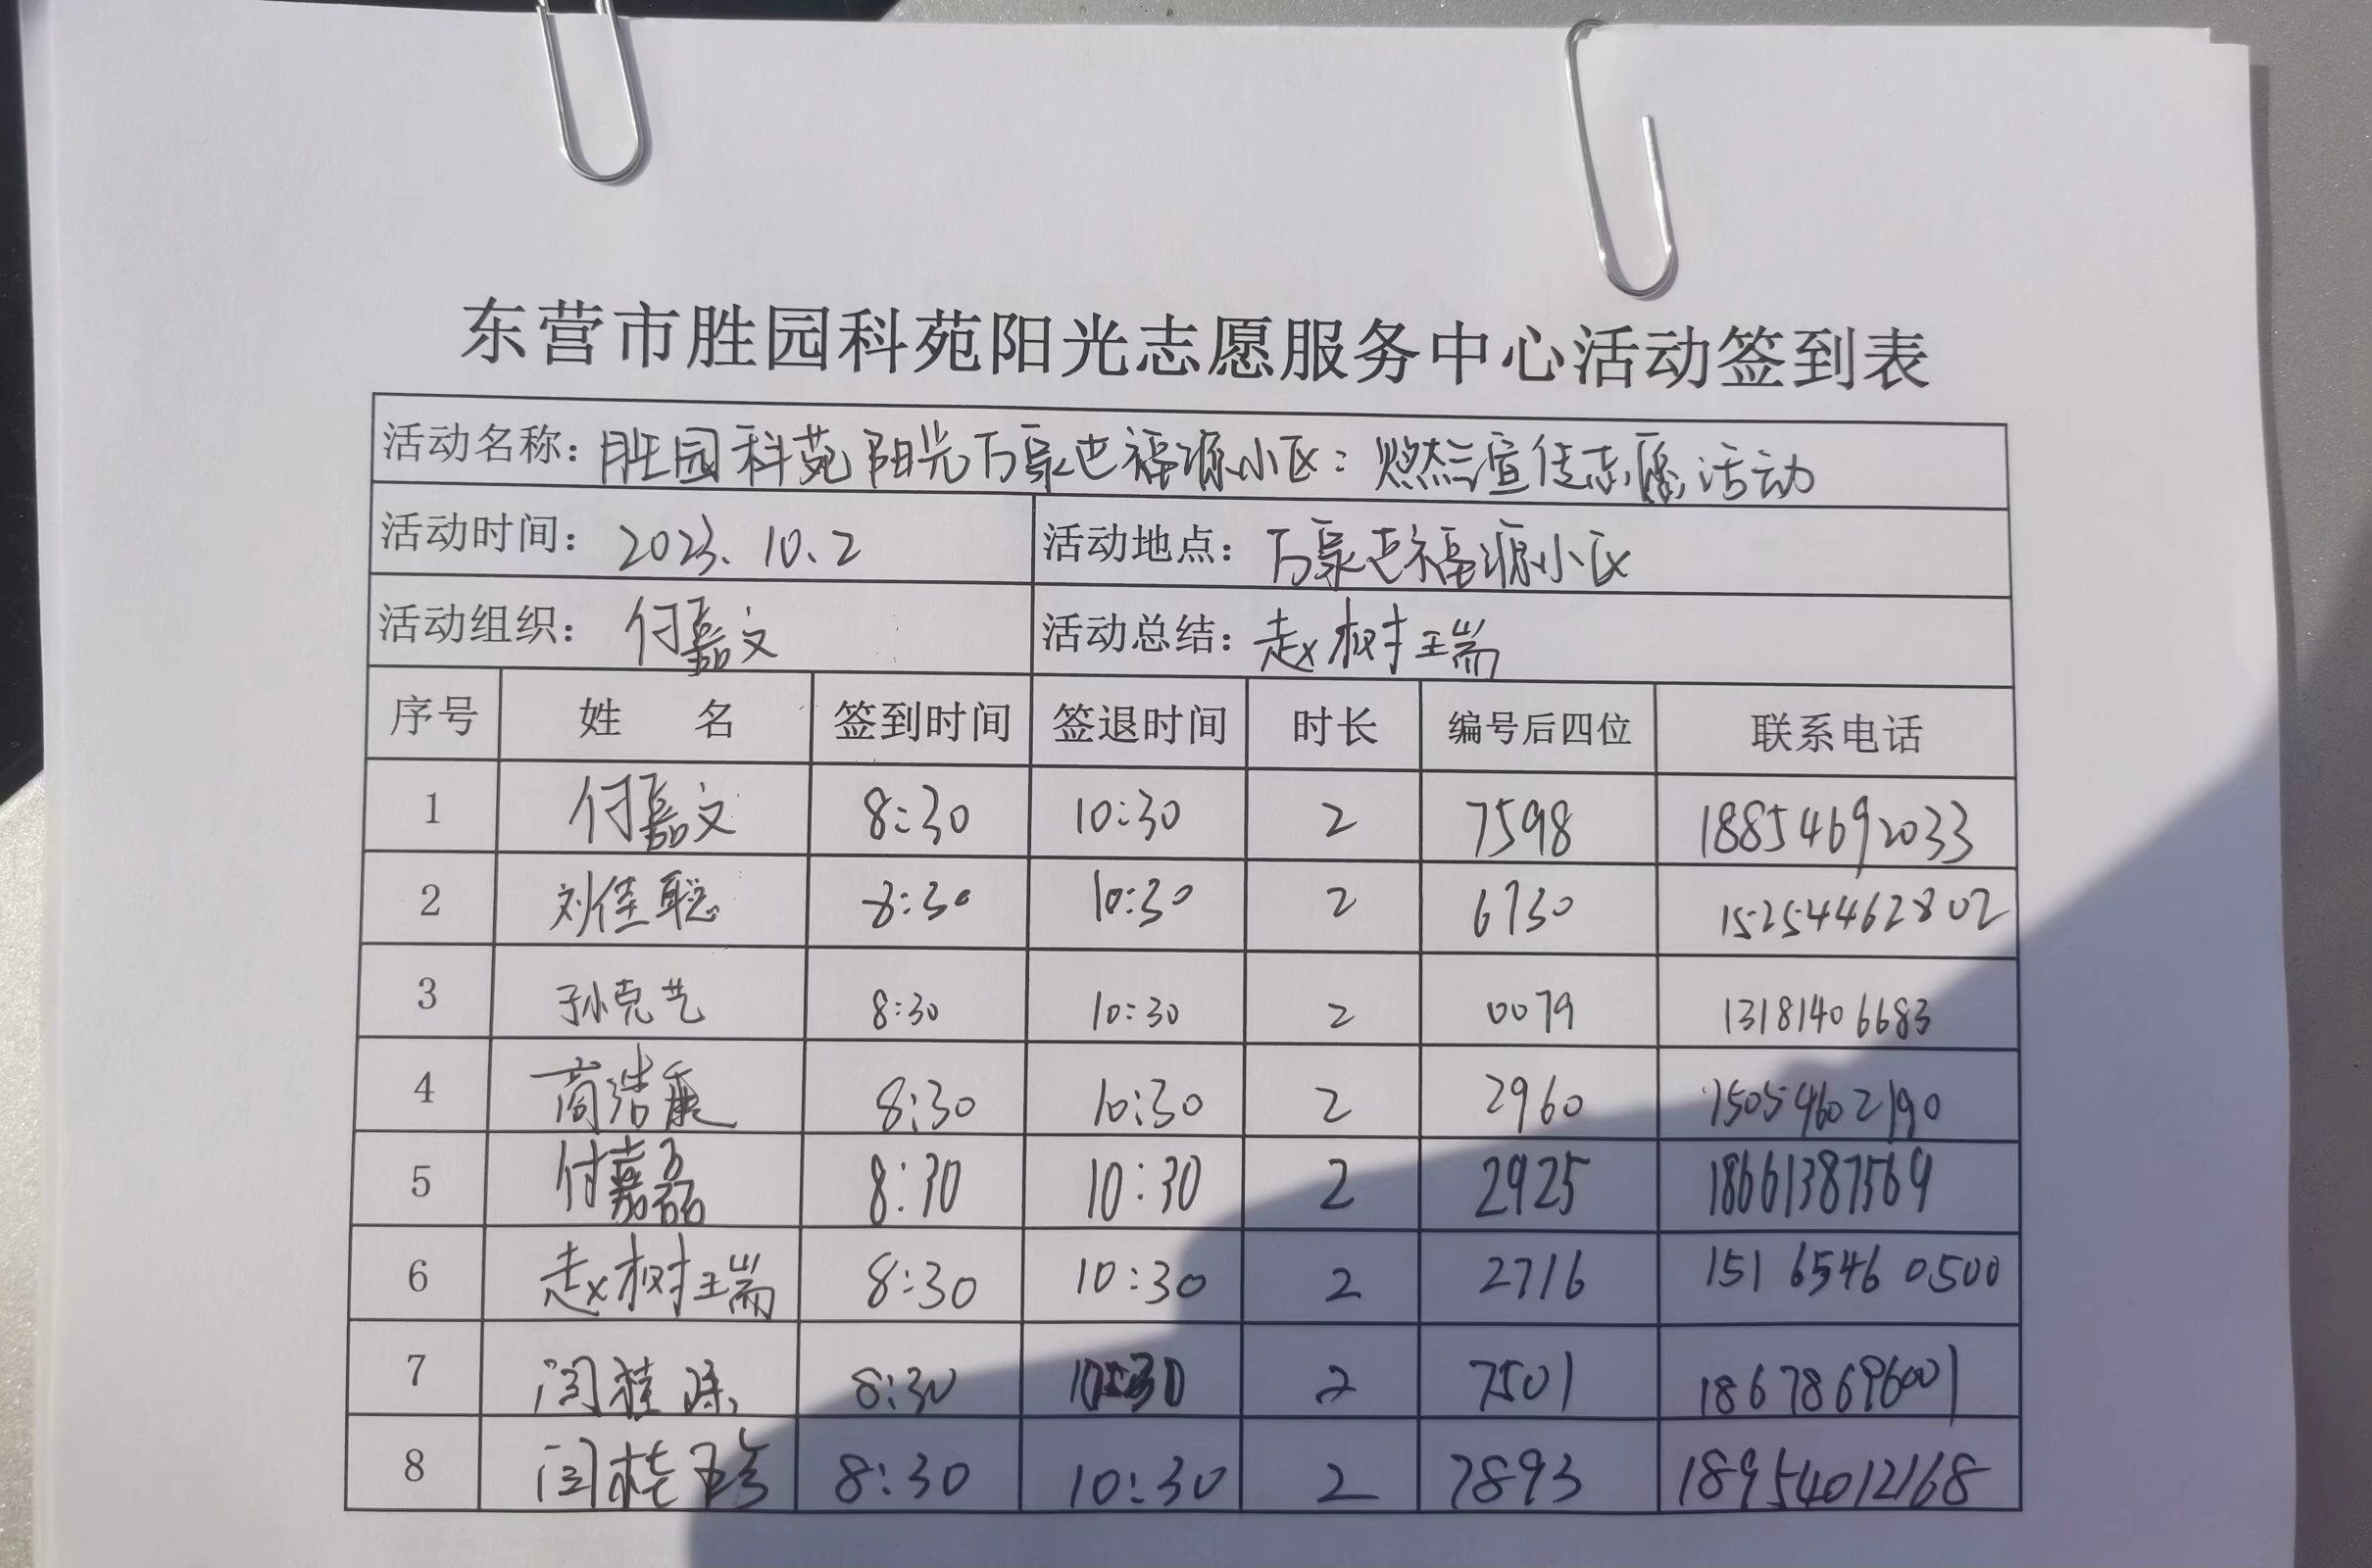 东营市胜园科苑阳光志愿服务中心活动签到表
活动名称：胜园科苑阳光万泉芭福源小区：燃气宣传志愿活动
活动时间：2023.10.2 活动地点：万泉芭福源小区
活动组织：付嘉文 活动总结：赵树瑞
序号 姓 名 签到时间 签退时间 时长 编号后四位 联系电话
1 付嘉文 8:30 10:30 2 7598 18854692033
2 刘佳聪 8:30 10:30 2 6730 15254462802
3 孙克艺 8:30 10:30 2 0079 13181406683
4 商浩 8:30 10:30 2 2960 15054602190
5 付嘉磊 8:30 10:30 2 2925 18661387569
6 赵树瑞 8:30 10:30 2 2716 15165460500
7 闫桂 8:30 10:30 2 7501 18678696001
8 闫桂珍 8:30 10:30 2 7893 18954012168